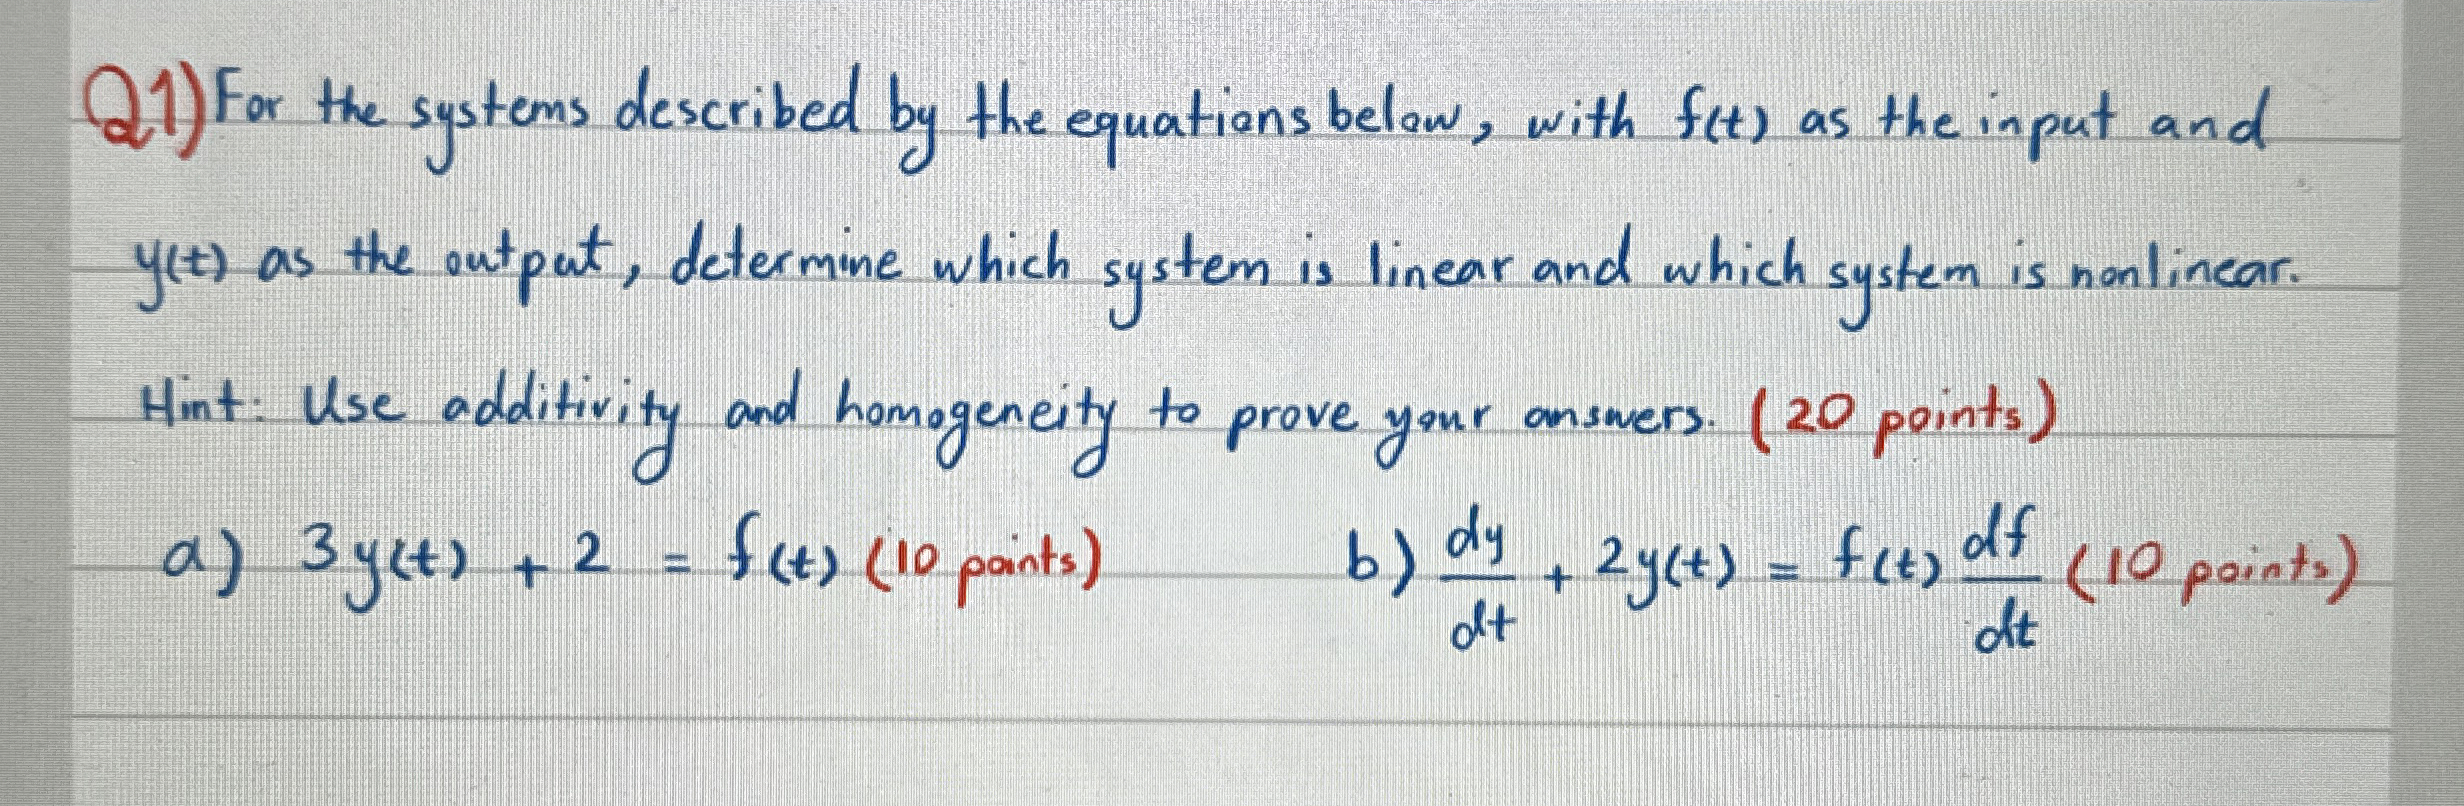 Q1) For the systems described by the equations below, with f(t) as the input and
y(t) as the output, determine which system is linear and which system is nonlinear.
Hint: Use additivity and homogeneity to prove your answers. (20 points)
a) 3y(t) + 2 = f(t) (10 points) b) dy/dt + 2y(t) = f(t) df/dt (10 points)